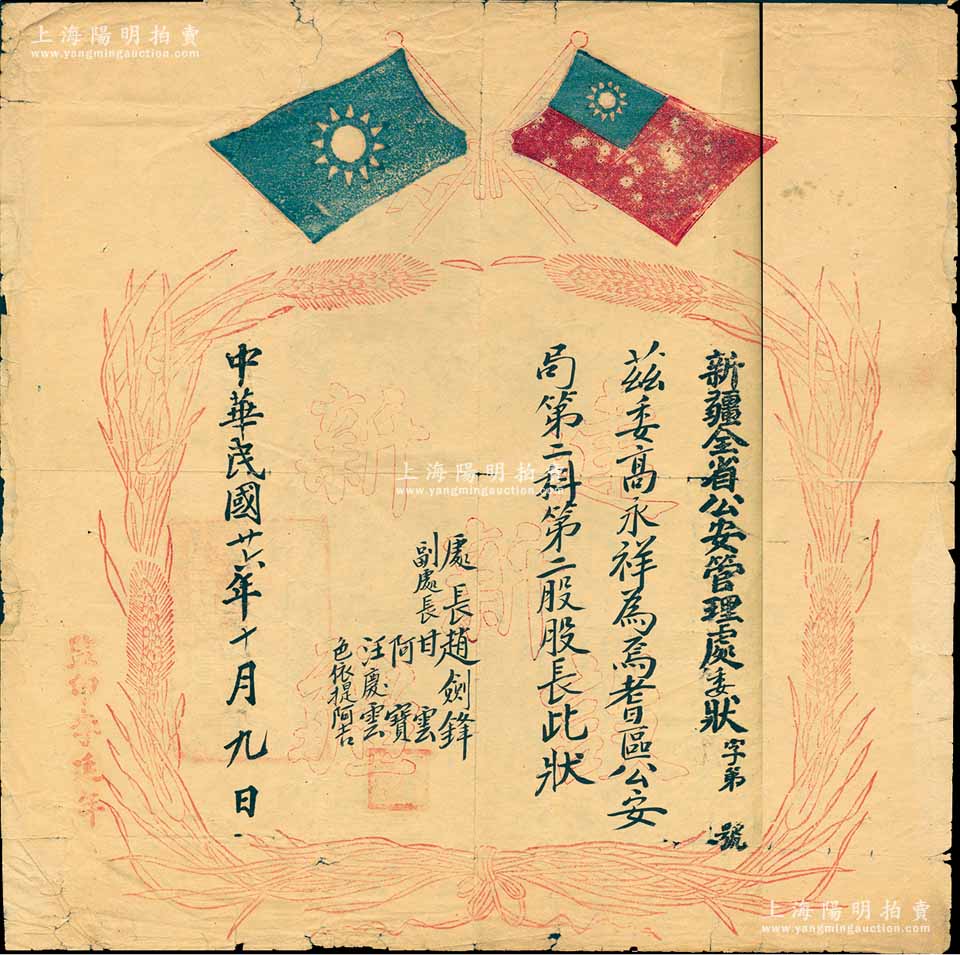 上海陽明拍賣
www.yangmingauction.com
新疆全省公安管理處委狀 字第 號
茲委高永祥為焉耆區公安
局第二科第二股股長此狀
處長趙劍鋒
副處長甘雲
阿寶
汪慶雲
色依提阿吉
中華民國廿六年十月九日
建設
新新疆
上海陽明拍賣
www.yangmingauction.com
上海陽明拍賣
www.yangmingauction.com